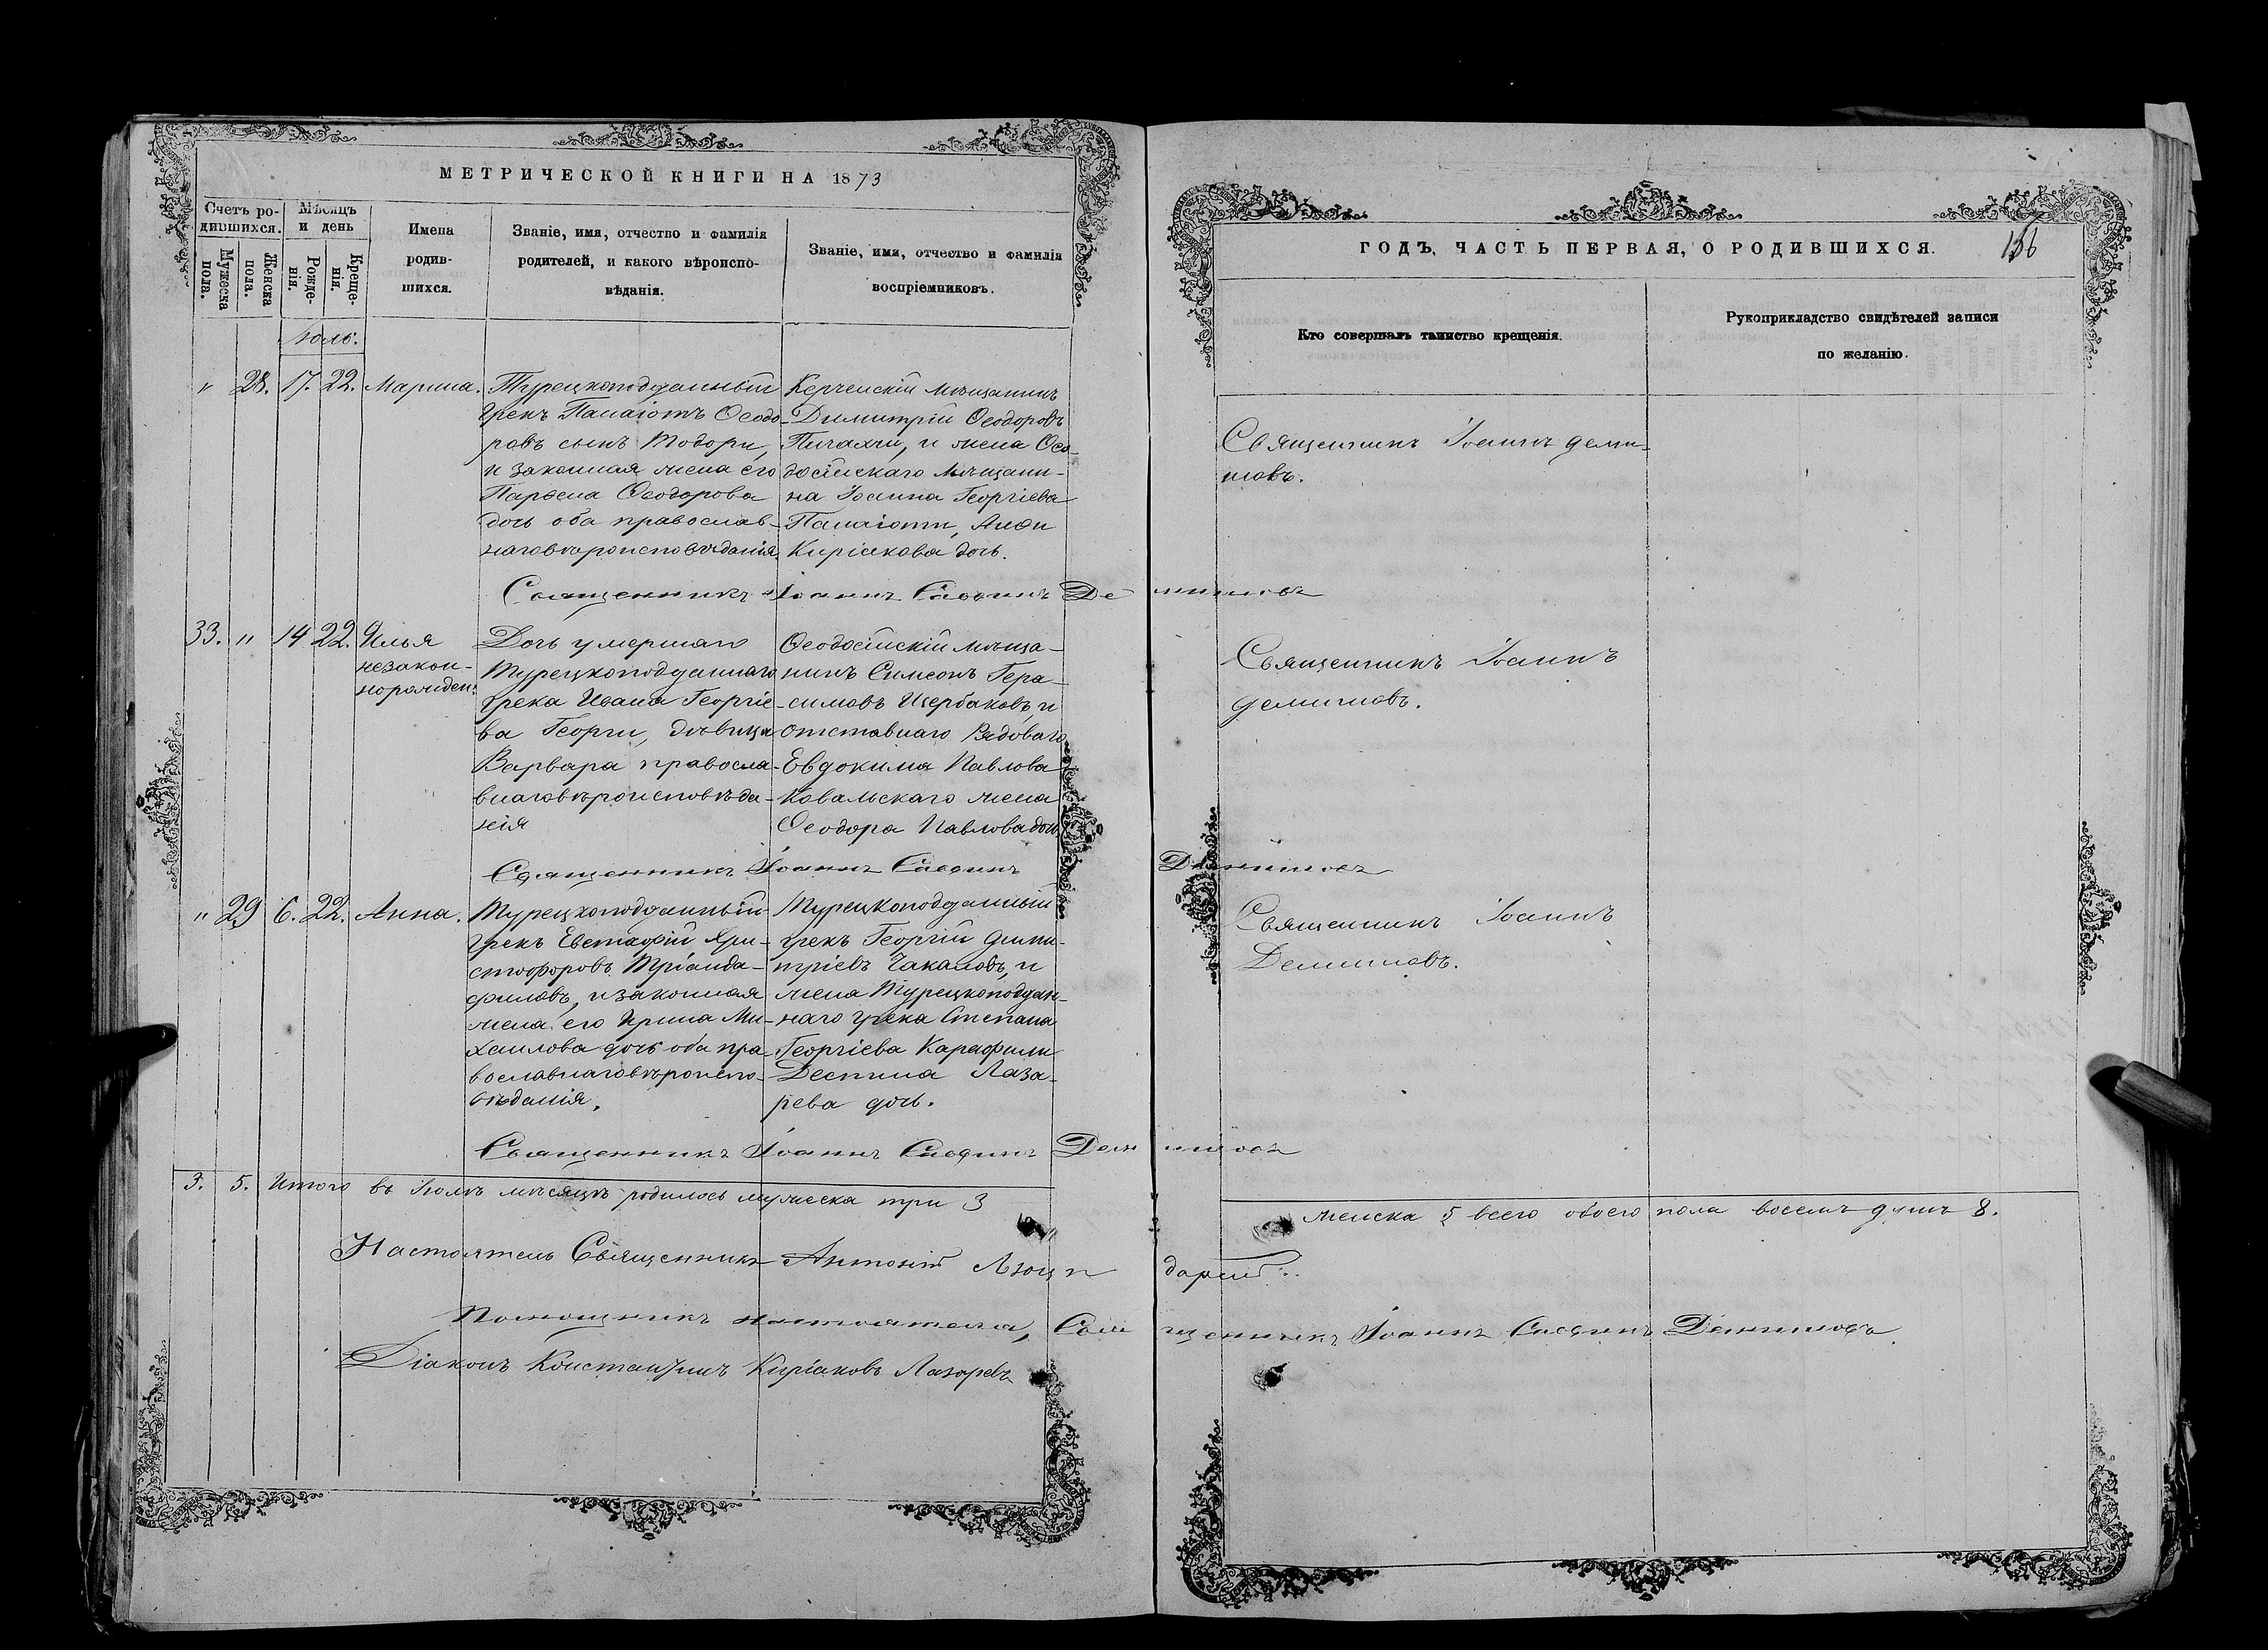 МЕТРИЧЕСКОЙ КНИГИ НА 1873
Счетъ ро-
дившихся.
Мѣсяцъ
и день
Мужеска
пола.
Женска
пола.
Рожде-
нія.
Креще-
нія.
Имена
родив-
шихся.
Званіе, имя, отчество и фамилія
родителей, и какого вѣроиспо-
вѣданія.
Званіе, имя, отчество и фамилія
воспріемниковъ.
Іюль.
" 28. 17. 22. Марина.
Турецкоподданный
грекъ Панаіотъ Ѳеодо-
ровъ сынъ Тодори,
и законная жена его
Парѳена Ѳеодорова
дочь оба православ-
наго вѣроисповѣданія.
Керченскій мѣщанинъ
Димитрій Ѳеодоровъ
Пичахчи, и жена Ѳео-
досійскаго мѣщани-
на Іоанна Георгіева
Панаіоти, Анѳи
Киріакова дочь.
Священникъ Іоаннъ Саввинъ Демниновъ
33. " 14 22. Илья
незакон-
норожден.
Дочь умершаго
Турецкоподданнаго
грека Ивана Георгіе-
ва Георги, дѣвица
Варвара правосла-
внаго вѣроисповѣда-
нія
Ѳеодосійскій мѣща-
нинъ Симеонъ Гера-
симовъ Щербаковъ, и
отставнаго Рядоваго
Евдокима Павлова
Ковальскаго жена
Ѳеодора Павлова дочь
Священникъ Іоаннъ Саввинъ
" 29 6. 22. Анна.
Турецкоподданный
грекъ Евстафій Хри-
стофоровъ Тріанда-
филовъ, и законная
жена его Ирина Ми-
хаилова дочь оба пра-
вославнаго вѣроиспо-
вѣданія.
Турецкоподданный
грекъ Георгій Дими-
тріевъ Чакаловъ, и
жена Турецкоподдан-
наго грека Степана
Георгіева Карафили
Деспина Лаза-
рева дочь.
Священникъ Іоаннъ Саввинъ
3. 5. Итого въ Іюлѣ мѣсяцѣ родилось мужеска три 3
Настоятель Священникъ Антоній
Помощникъ настоятеля, Священникъ Іоаннъ Саввинъ
Діаконъ Константинъ Киріаковъ Лазаревъ
ГОДЪ, ЧАСТЬ ПЕРВАЯ, О РОДИВШИХСЯ.
156
Кто совершалъ таинство крещенія.
Рукоприкладство свидѣтелей записи
по желанію.
Священникъ Іоаннъ
Священникъ Іоаннъ
Священникъ Іоаннъ
женска 5 всего обоего пола восемь душъ 8.